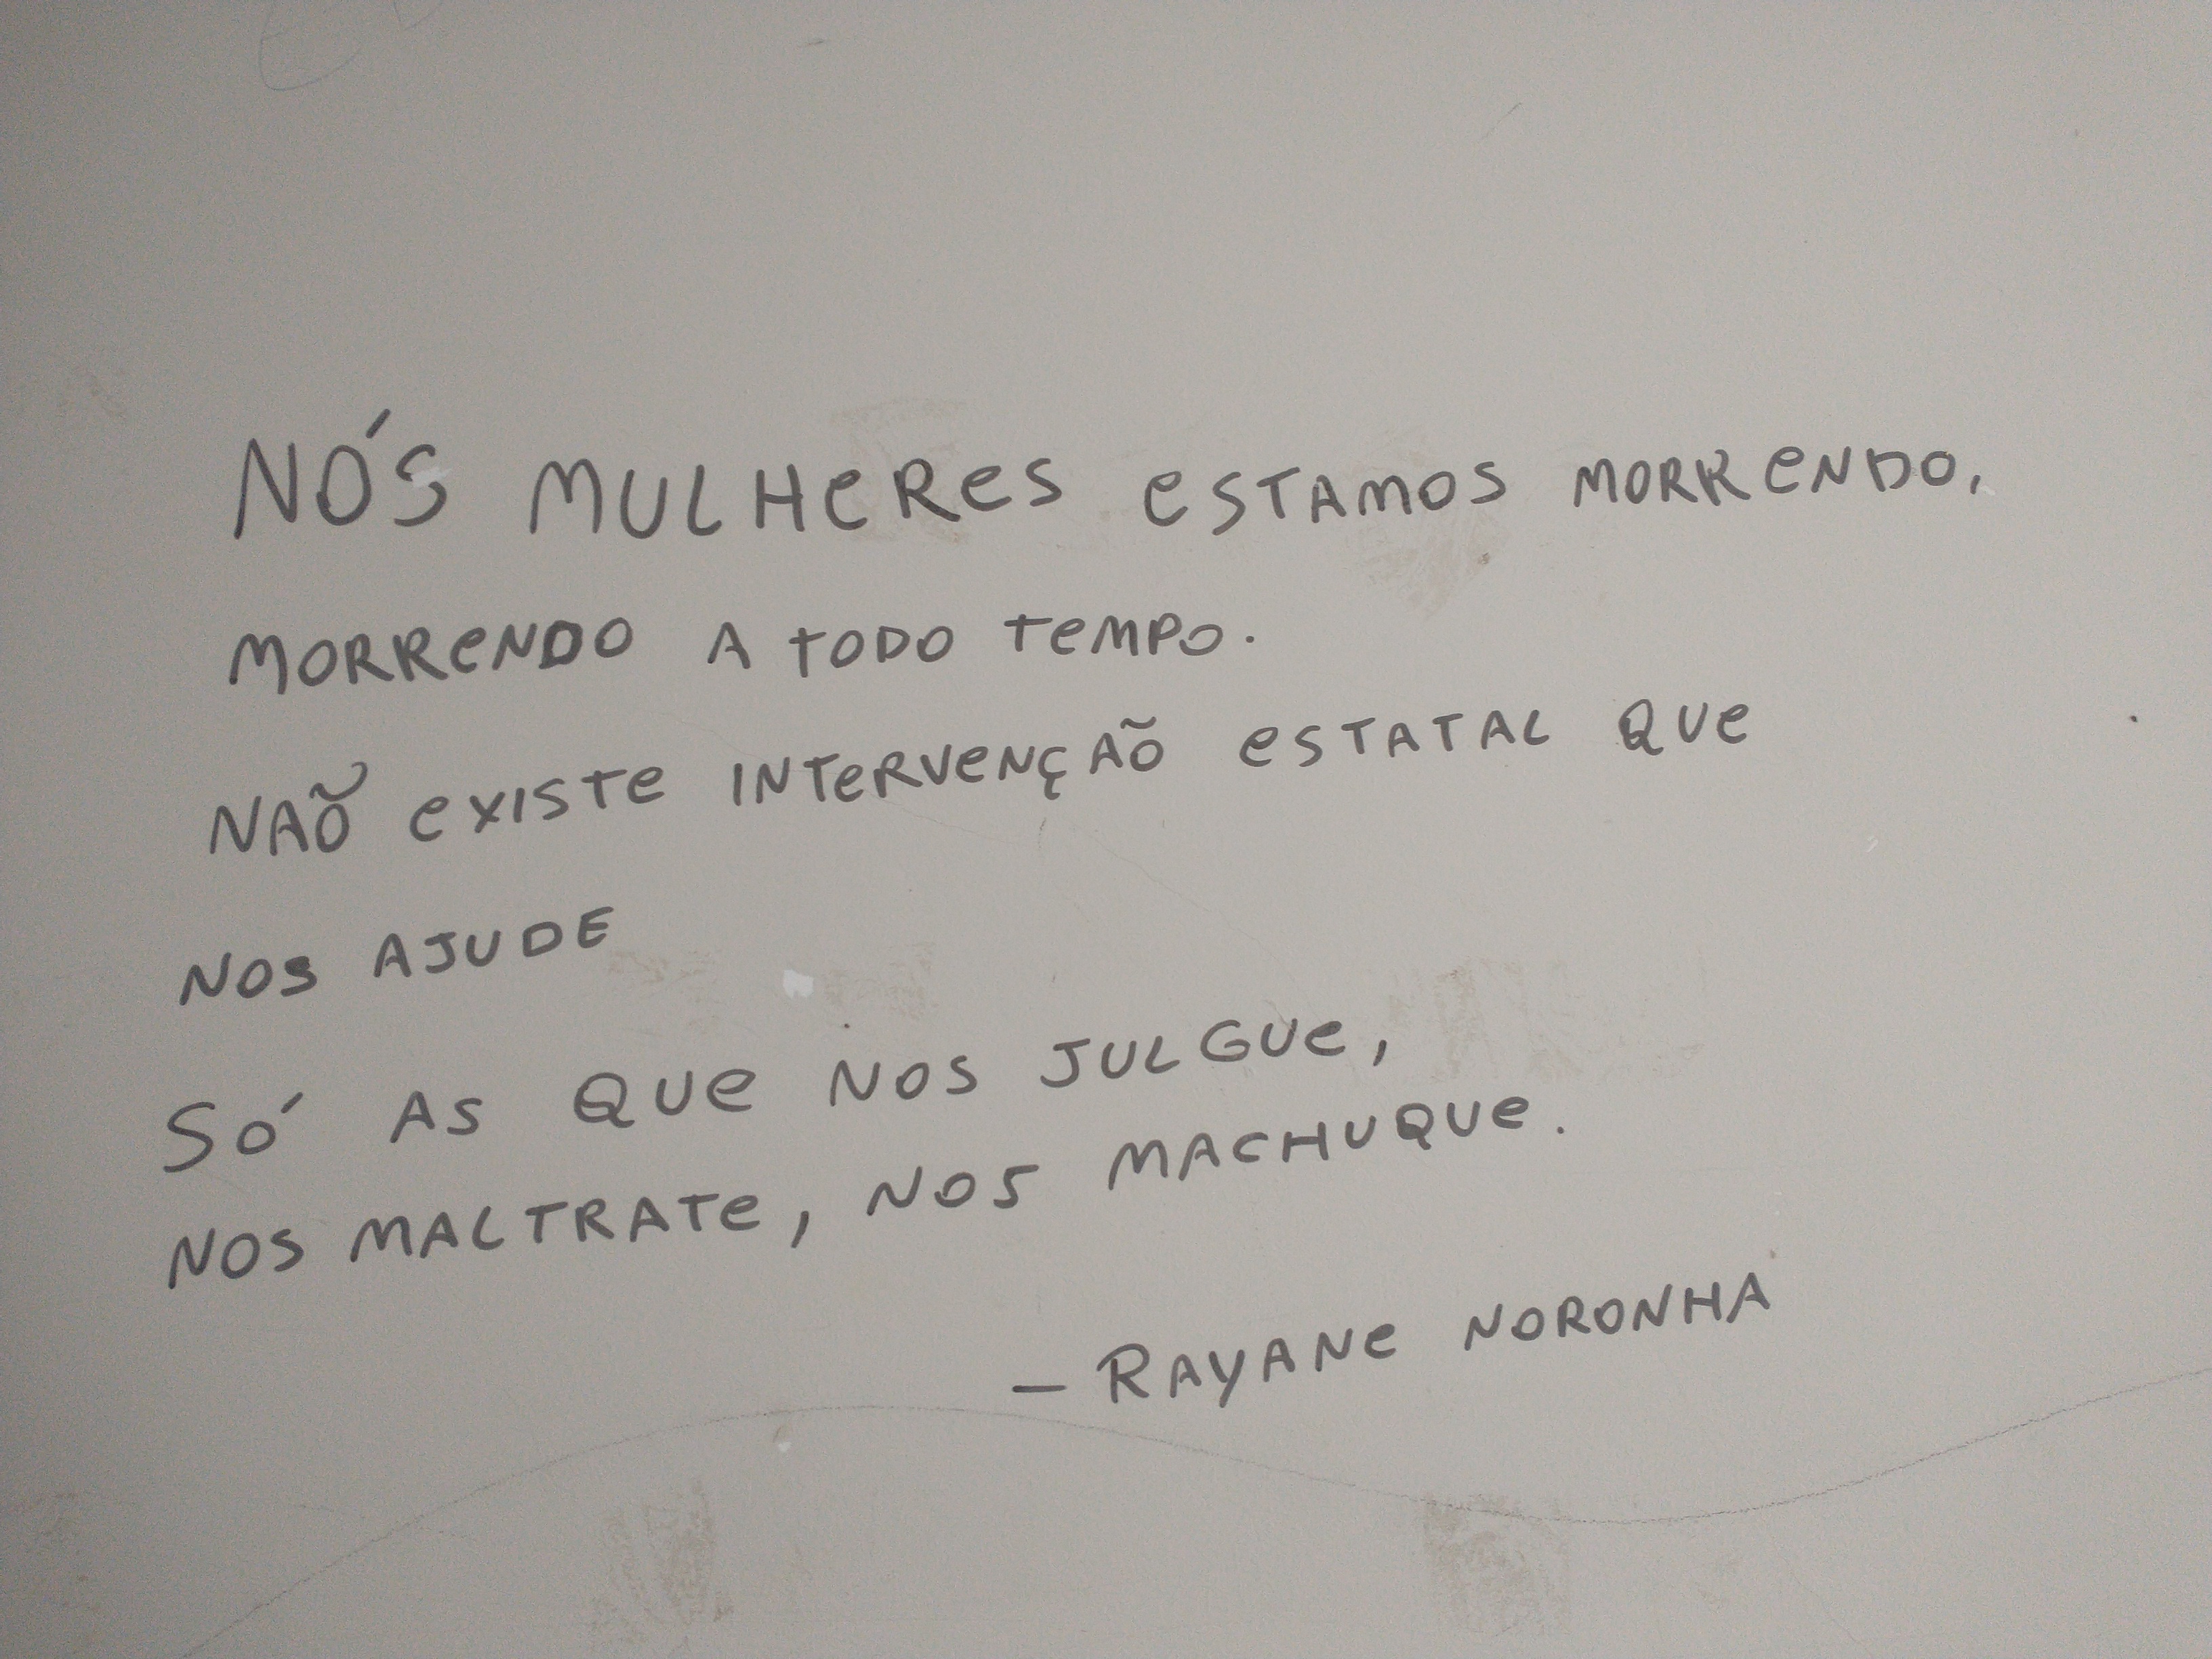 NÓS MULHERES ESTAMOS MORRENDO,
MORRENDO A TODO TEMPO.
NÃO EXISTE INTERVENÇÃO ESTATAL QUE
NOS AJUDE
SÓ AS QUE NOS JULGUE,
NOS MALTRATE, NOS MACHUQUE.
— RAYANE NORONHA